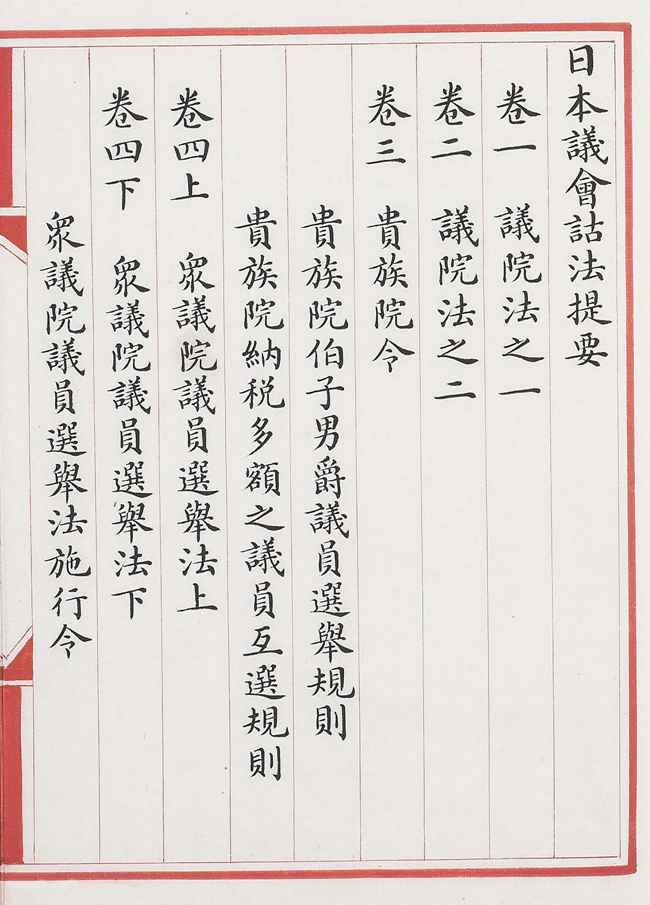 日本議會詁法提要
卷一　議院法之一
卷二　議院法之二
卷三　貴族院令
貴族院伯子男爵議員選舉規則
貴族院納税多額之議員互選規則
卷四上　衆議院議員選舉法上
卷四下　衆議院議員選舉法下
衆議院議員選舉法施行令